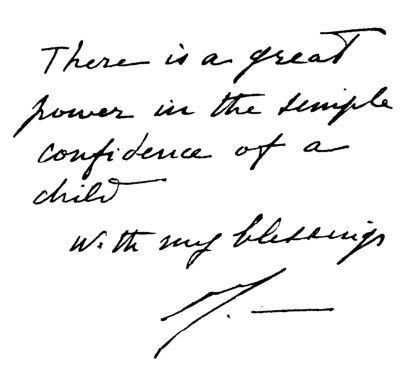 There is a great
power in the simple
confidence of a
child
With my blessings